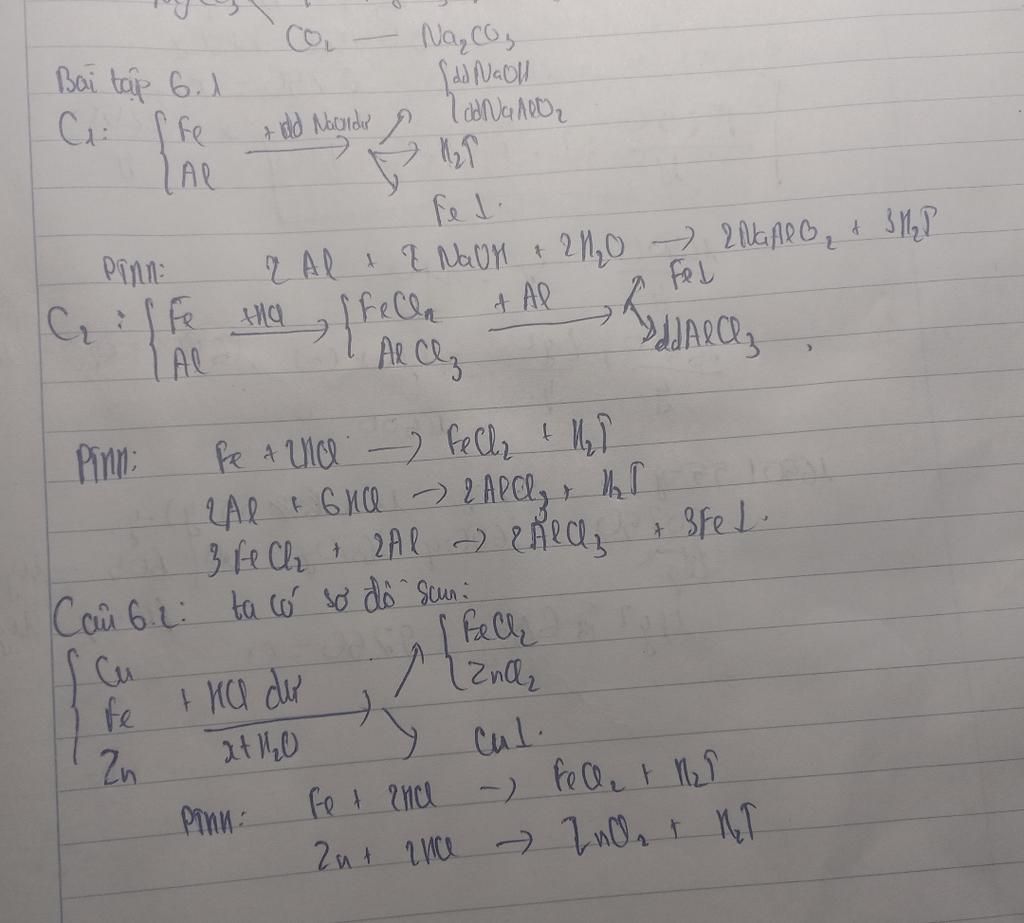 CO₂ — Na₂CO₃
Bài tập 6.1
C₁: { Fe Al + dd NaOH dư → { dd NaOH dd NaAlO₂
H₂↑
Fe↓.
PTHH: 2Al + 2NaOH + 2H₂O → 2NaAlO₂ + 3H₂↑
C₂: { Fe Al +HCl → { FeCl₂ AlCl₃ + Al → Fe↓
dd AlCl₃
PTHH: Fe + 2HCl → FeCl₂ + H₂↑
2Al + 6HCl → 2AlCl₃ + H₂↑
3FeCl₂ + 2Al → 2AlCl₃ + 3Fe↓.
Câu 6.2: ta có sơ đồ sau:
{ Cu Fe Zn + HCl dư → { FeCl₂ ZnCl₂
Cu↓.
PTHH: Fe + 2HCl → FeCl₂ + H₂↑
Zn + 2HCl → ZnCl₂ + H₂↑